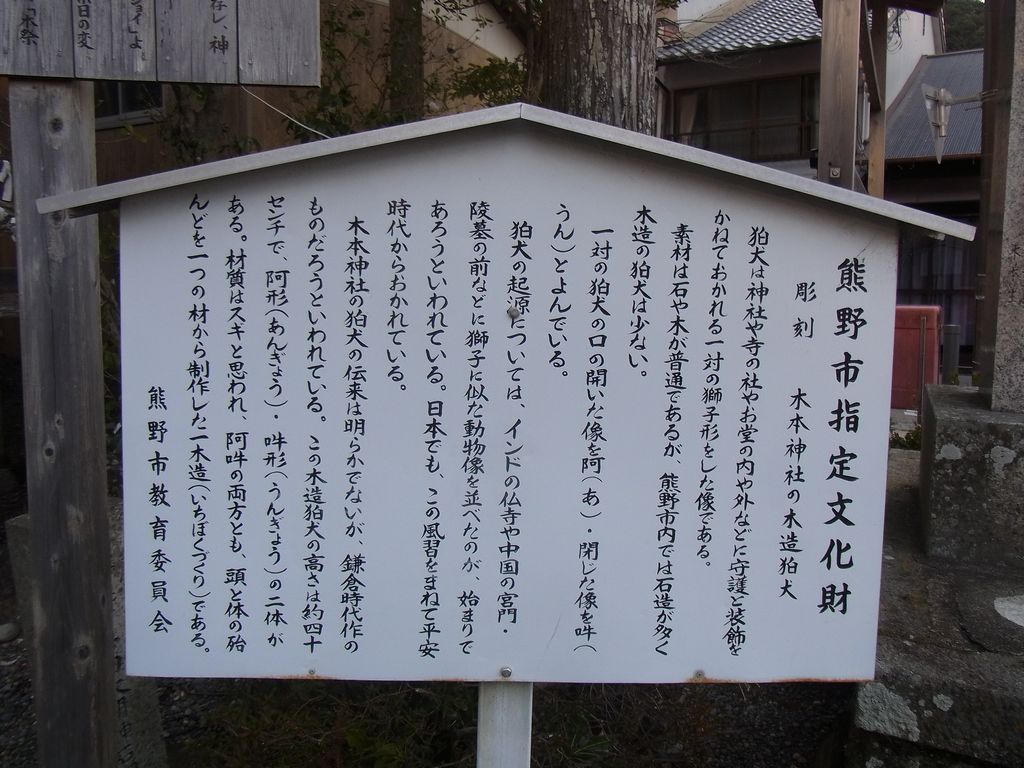 熊野市指定文化財
彫刻　木本神社の木造狛犬
狛犬は神社や寺の社やお堂の内や外などに守護と装飾を
かねておかれる一対の獅子形をした像である。
素材は石や木が普通であるが、熊野市内では石造が多く
木造の狛犬は少ない。
一対の狛犬の口の開いた像を阿(あ)・閉じた像を吽(
うん)とよんでいる。
狛犬の起源については、インドの仏寺や中国の宮門・
陵墓の前などに獅子に似た動物像を並べたのが、始まりで
あろうといわれている。日本でも、この風習をまねて平安
時代からおかれている。
木本神社の狛犬の伝来は明らかでないが、鎌倉時代作の
ものだろうといわれている。この木造狛犬の高さは約四十
センチで、阿形(あんぎょう)・吽形(うんぎょう)の二体が
ある。材質はスギと思われ、阿吽の両方とも、頭と体の殆
んどを一つの材から制作した一木造(いちぼくづくり)である。
熊野市教育委員会
存し、神
」よ
日の変
「本祭